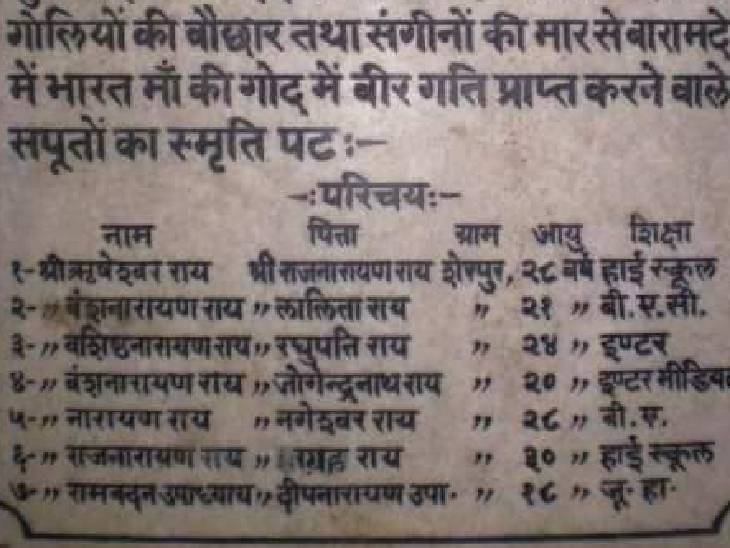 गोलियों की बौछार तथा संगीनों की मार से बारामदे
में भारत माँ की गोद में बीर गति प्राप्त करने वाले
सपूतों का स्मृति पट :-
-: परिचय :-
नाम पिता ग्राम आयु शिक्षा
१- श्री ऋषेश्वर राय श्री राजनारायण राय शेरपुर, २८ वर्ष हाई स्कूल
२- ,, बंशनारायण राय ,, लालिता राय ,, २१ ,, बी.ए.सी.
३- ,, वशिष्ठनारायण राय ,, रघुपति राय ,, २४ ,, इण्टर
४- ,, बंशनारायण राय ,, जोगेन्द्रनाथ राय ,, २० ,, इण्टर मीडियट
५- ,, नारायण राय ,, नगेश्वर राय ,, २८ ,, बी.ए.
६- ,, राजनारायण राय ,, राय ,, ३० ,, हाई स्कूल
७- ,, रामबदन उपाध्याय ,, दीपनारायण उपा. ,, १८ ,, जू. हा.